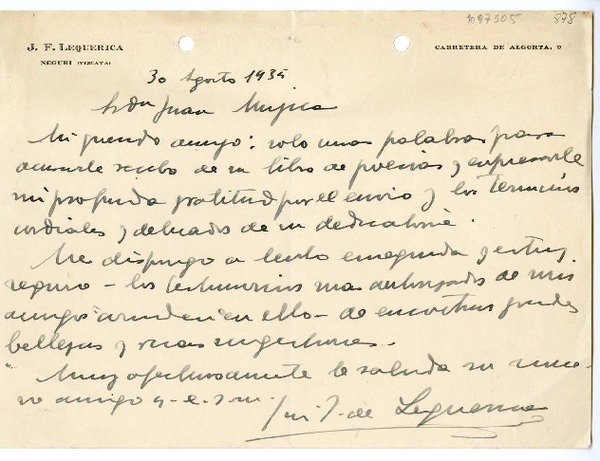 1097305 878
J. F. LEQUERICA
NEGURI (VIZCAYA)
CARRETERA DE ALGORTA, 9
30 Agosto 1935
Sr Don Juan Mujica
Mi querido amigo: solo unas palabras para
acusarle recibo de su libro de poesias y expresarle
mi profunda gratitud por el envio y los terminos
cordiales y delicados de su dedicatoria.
Me dispongo a leerlo enseguida y estoy
seguro – los testimonios mas autorizados de mis
amigos en ello – de encontrar grandes
bellezas y ricas sugestiones.
Muy afectuosamente le saluda su nue-
vo amigo q. e. s. m.
J. de Lequerica